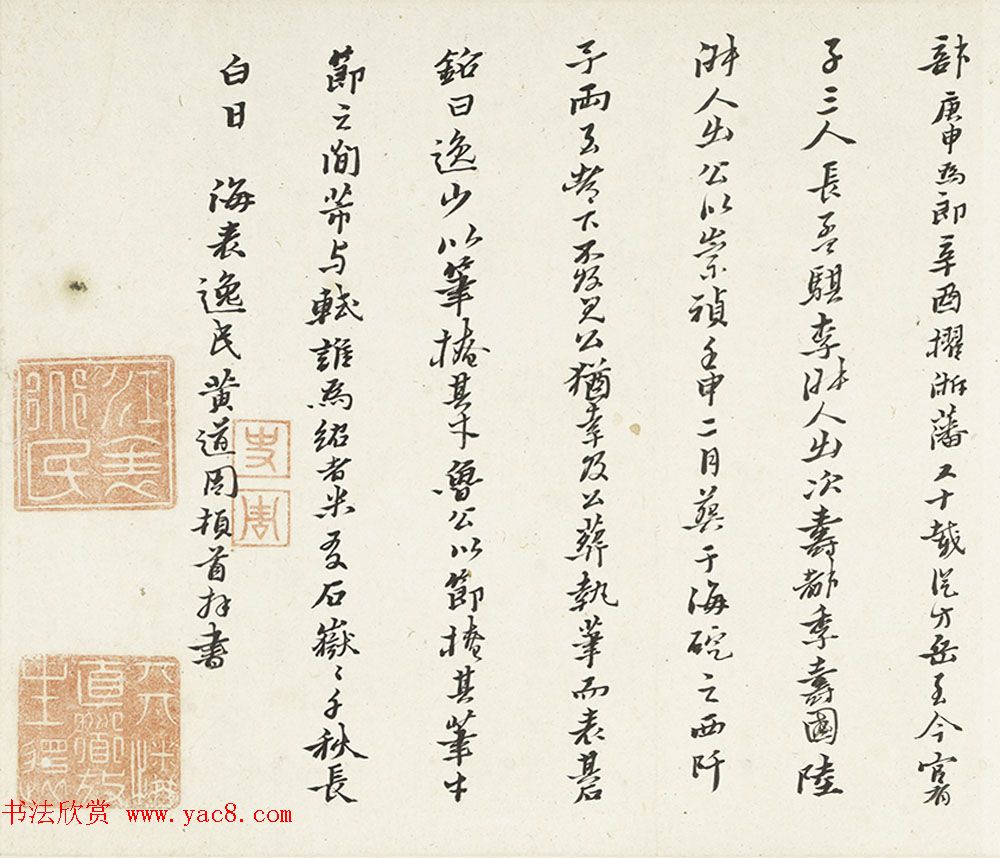 部庚申為郎辛酉擢浙藩又十載從方岳至今官有
子三人長孟騏李孺人出次壽都季壽國陸
孺人出公以崇禎壬申二月葬于海碇之西阡
予兩至都下不及見公猶幸及公葬執筆而表碁石
銘曰逸少以筆掩其才魯公以節掩其筆才
節之間芾与軾誰為紹者米友石嶽〻千秋長
白日 海表逸民黃道周頓首拜書
道周
书法欣赏 www.yac8.com